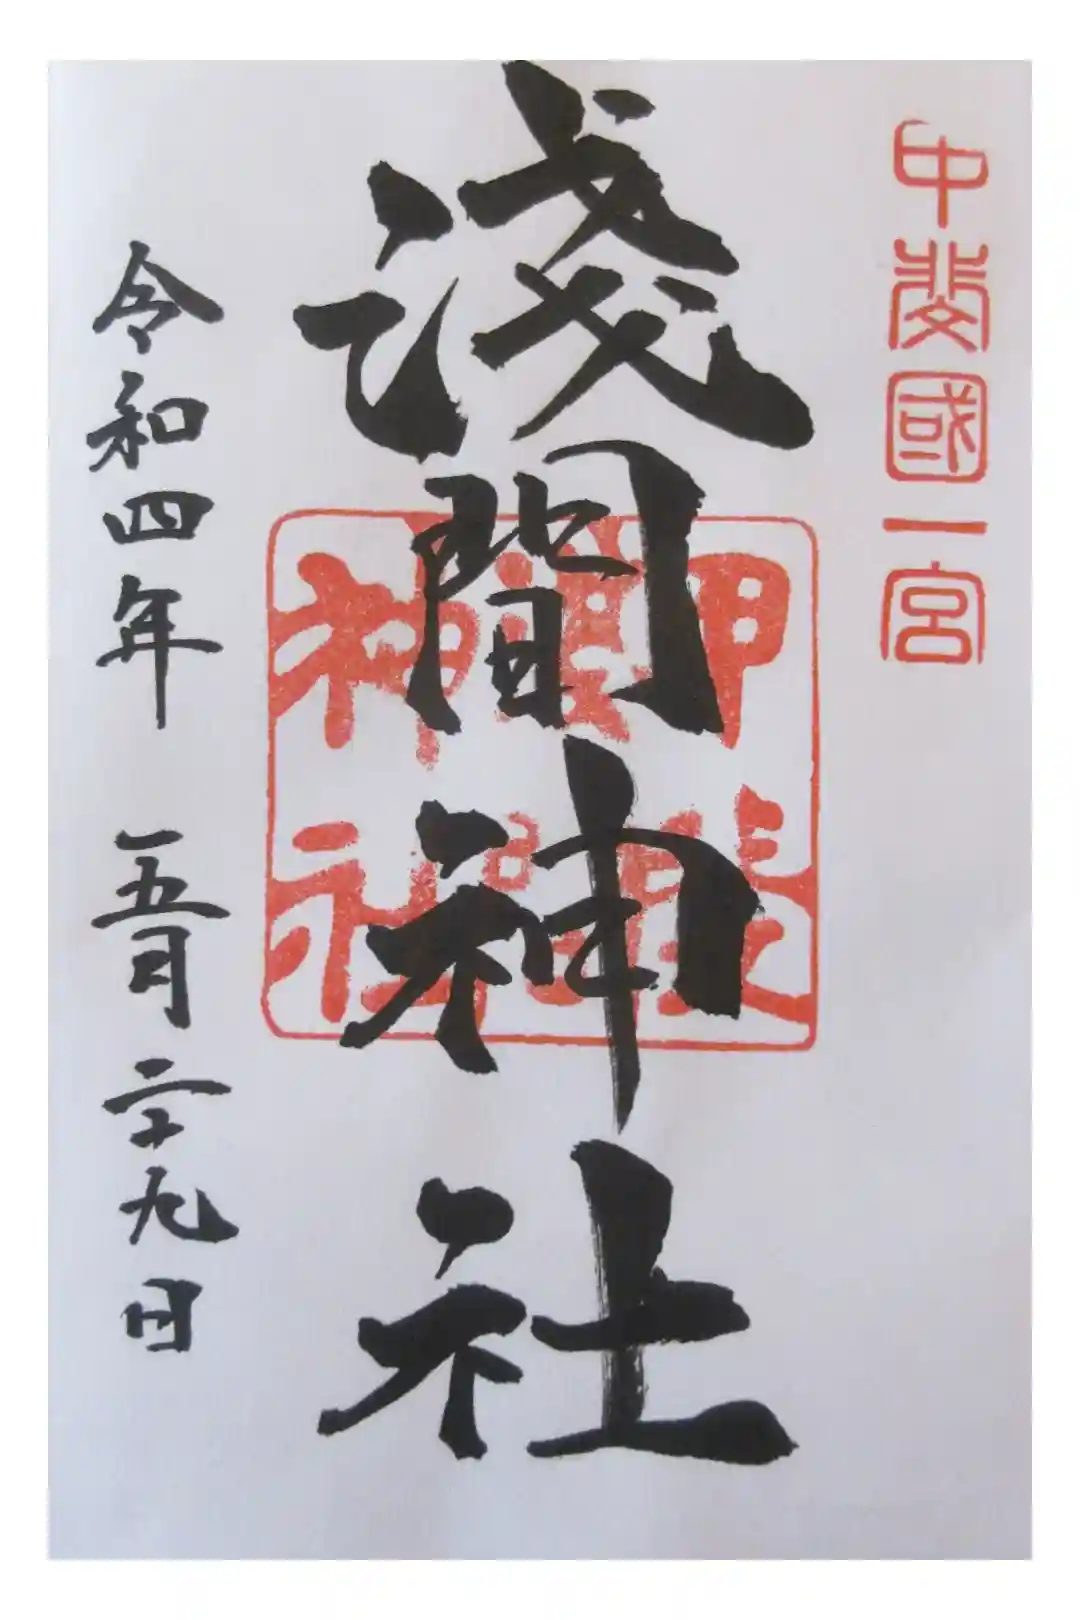 甲斐國一宮
淺間神社
神社
令和四年 五月二十九日